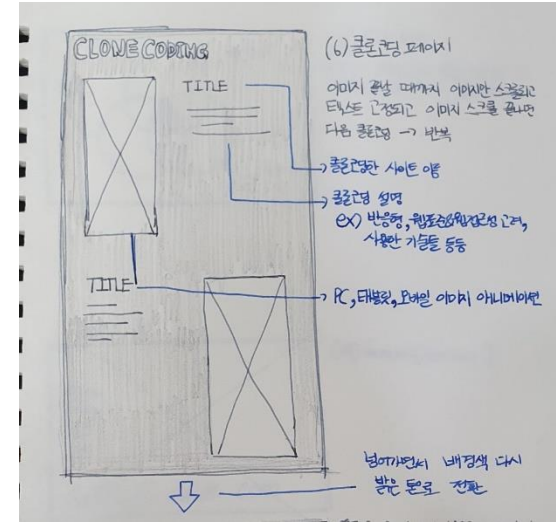 CLONE CODING
TITLE
TITLE
(6) 클론코딩 페이지
이미지 끝날 때까지 이미지만 스크롤되고
텍스트 고정되고 이미지 스크롤 끝나면
다음 클론코딩 → 반복
→ 클론코딩한 사이트 이름
→ 클론코딩 설명
ex) 반응형, 웹표준&웹접근성 고려,
사용한 기술들 등등
→ PC, 태블릿, 모바일 이미지 애니메이션
넘어가면서 배경색 다시
밝은 톤으로 전환